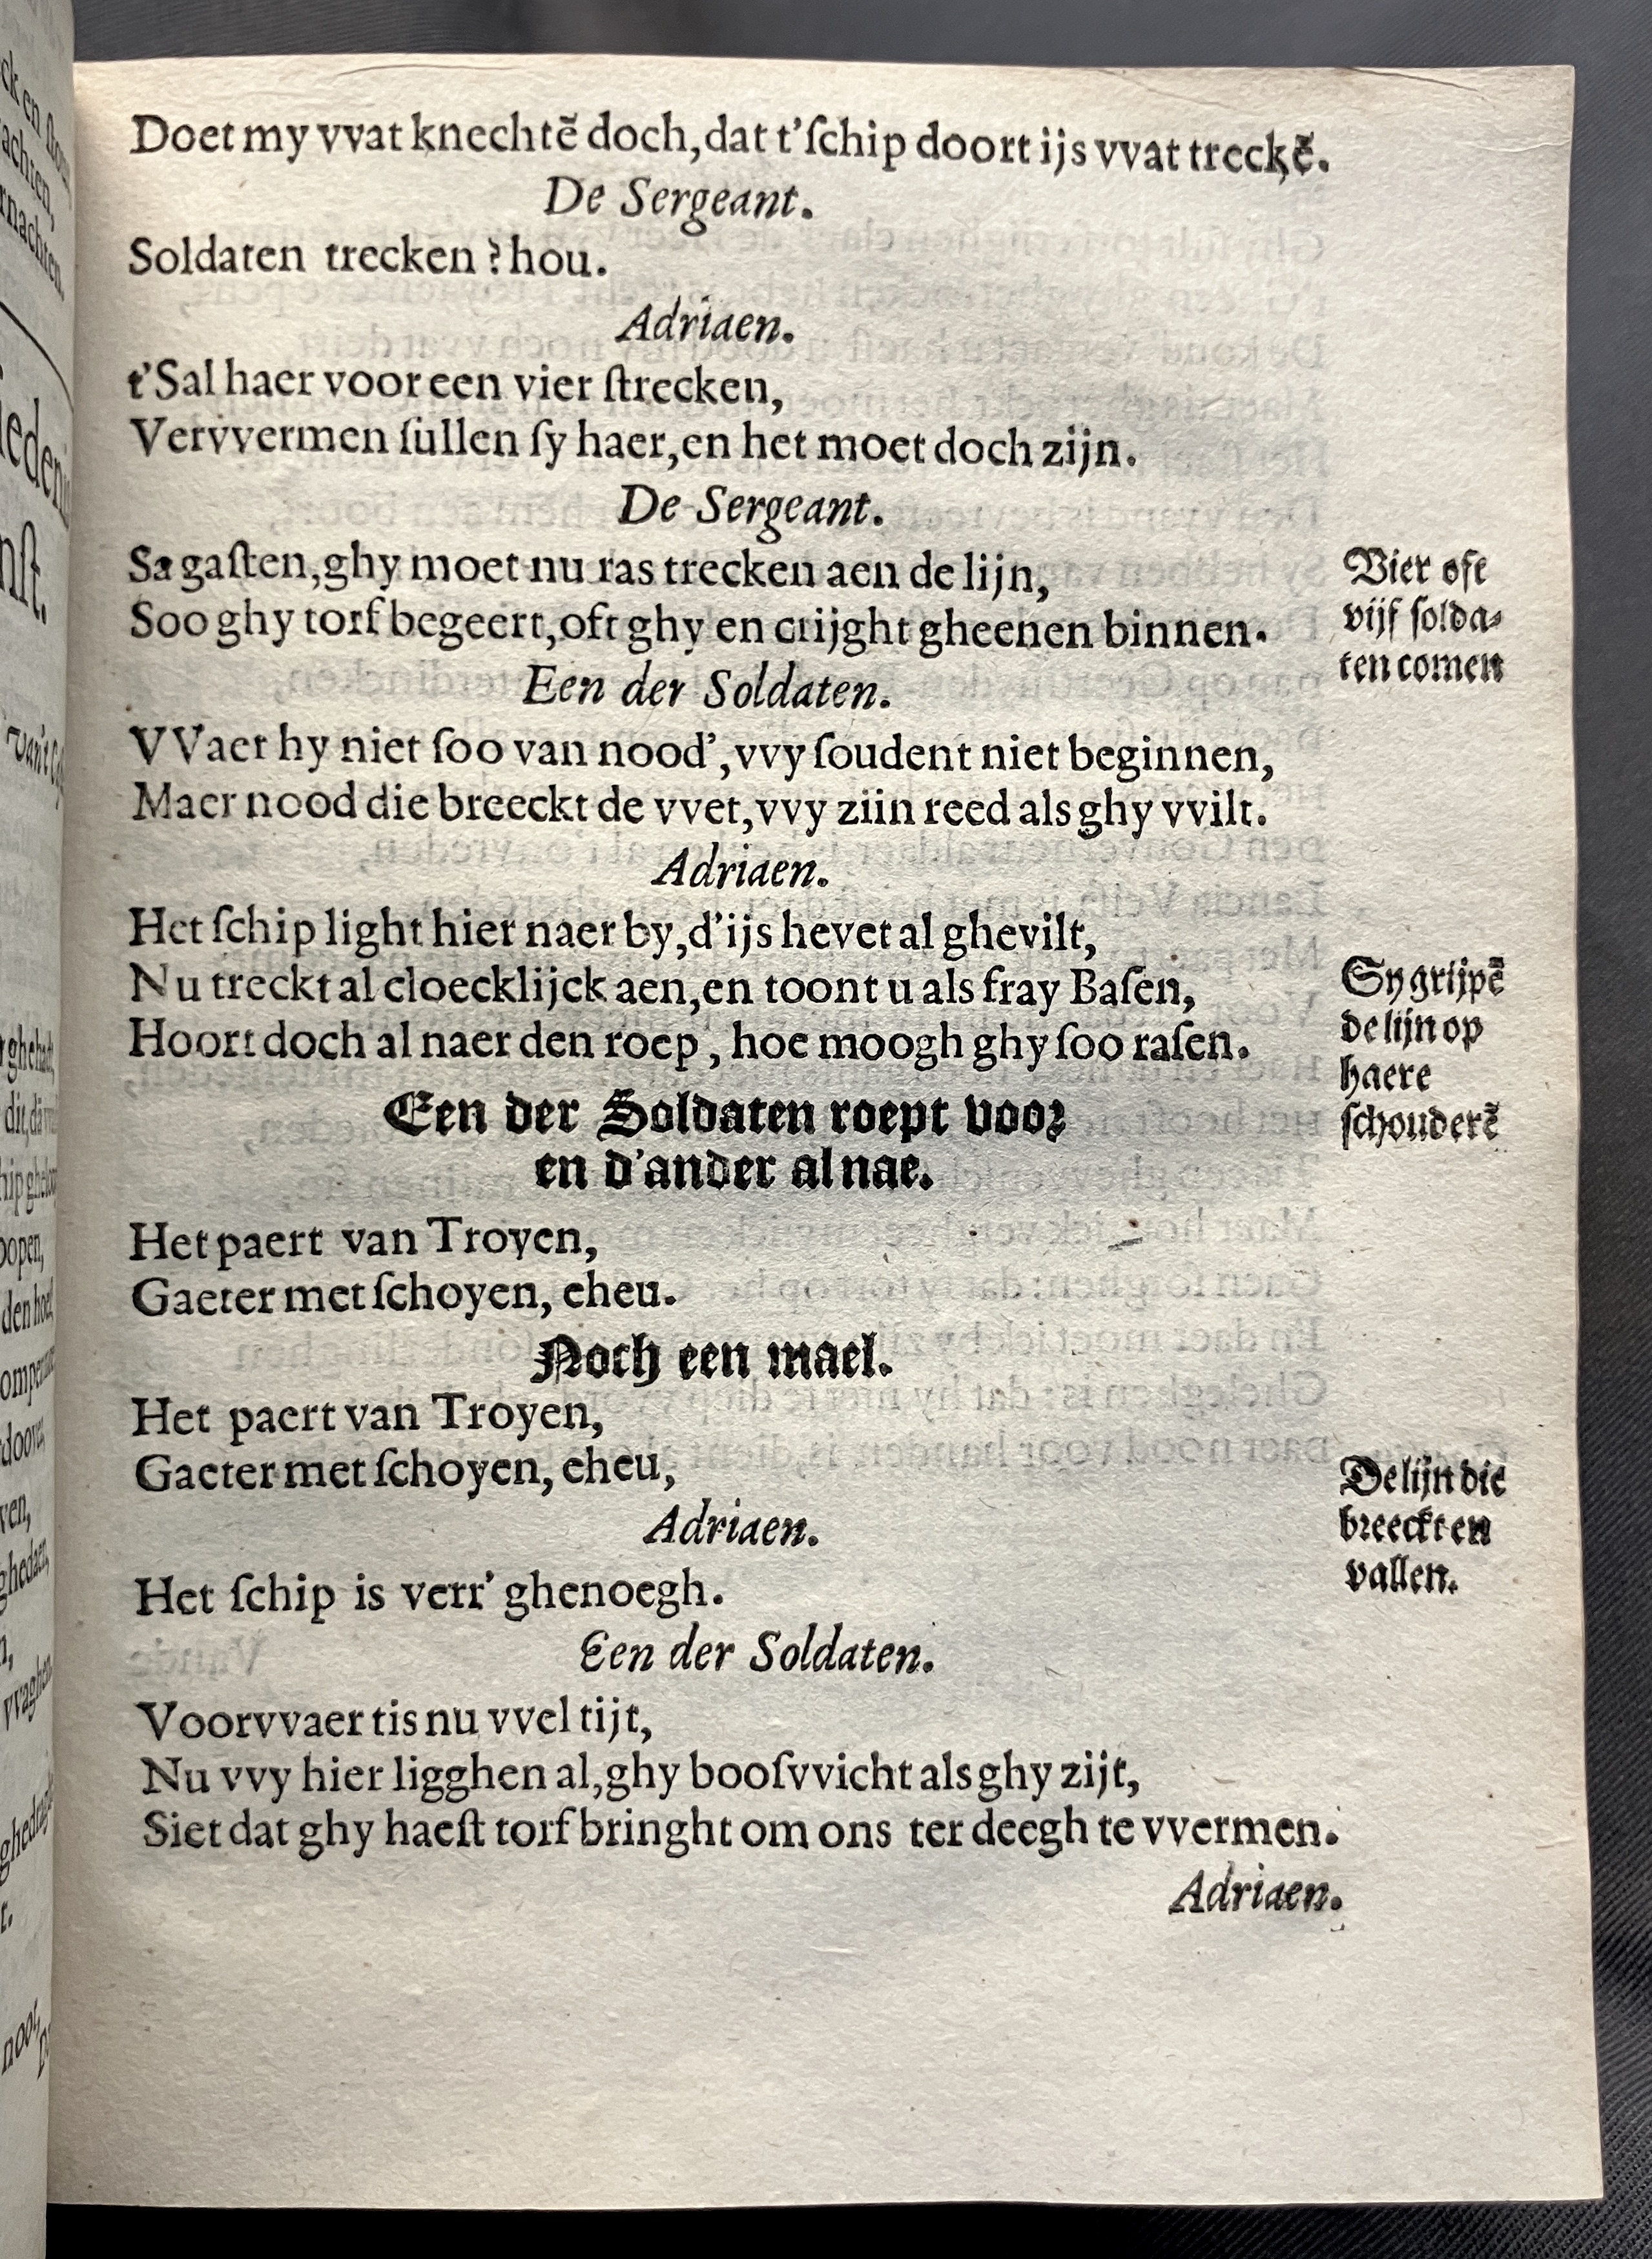 Doet my vvat knechtē doch, dat t'ſchip doort ijs vvat treckē.
De Sergeant.
Soldaten trecken ? hou.
Adriaen.
t'Sal haer voor een vier ſtrecken,
Vervvermen ſullen ſy haer, en het moet doch zijn.
De Sergeant.
Sa gaſten, ghy moet nu ras trecken aen de lijn,
Soo ghy torf begeert, oft ghy en crijght gheenen binnen.
Vier ofe
vijf ſolda-
ten comen
Een der Soldaten.
VVaer hy niet ſoo van nood', vvy ſoudent niet beginnen,
Maer nood die breeckt de vvet, vvy ziin reed als ghy vvilt.
Adriaen.
Het ſchip light hier naer by, d'ijs hevet al ghevilt,
Nu treckt al cloecklijck aen, en toont u als fray Baſen,
Hoort doch al naer den roep, hoe moogh ghy ſoo raſen.
Sy grijpē
de lijn op
haere
ſchouderē
Een der Soldaten roept voor
en d'ander al nae.
Het paert van Troyen,
Gaeter met ſchoyen, eheu.
Noch een mael.
Het paert van Troyen,
Gaeter met ſchoyen, eheu,
De lijn die
breeckt en
vallen.
Adriaen.
Het ſchip is verr' ghenoegh.
Een der Soldaten.
Voorvvaer tis nu vvel tijt,
Nu vvy hier ligghen al, ghy booſvvicht als ghy zijt,
Siet dat ghy haeſt torf bringht om ons ter deegh te vvermen.
Adriaen.